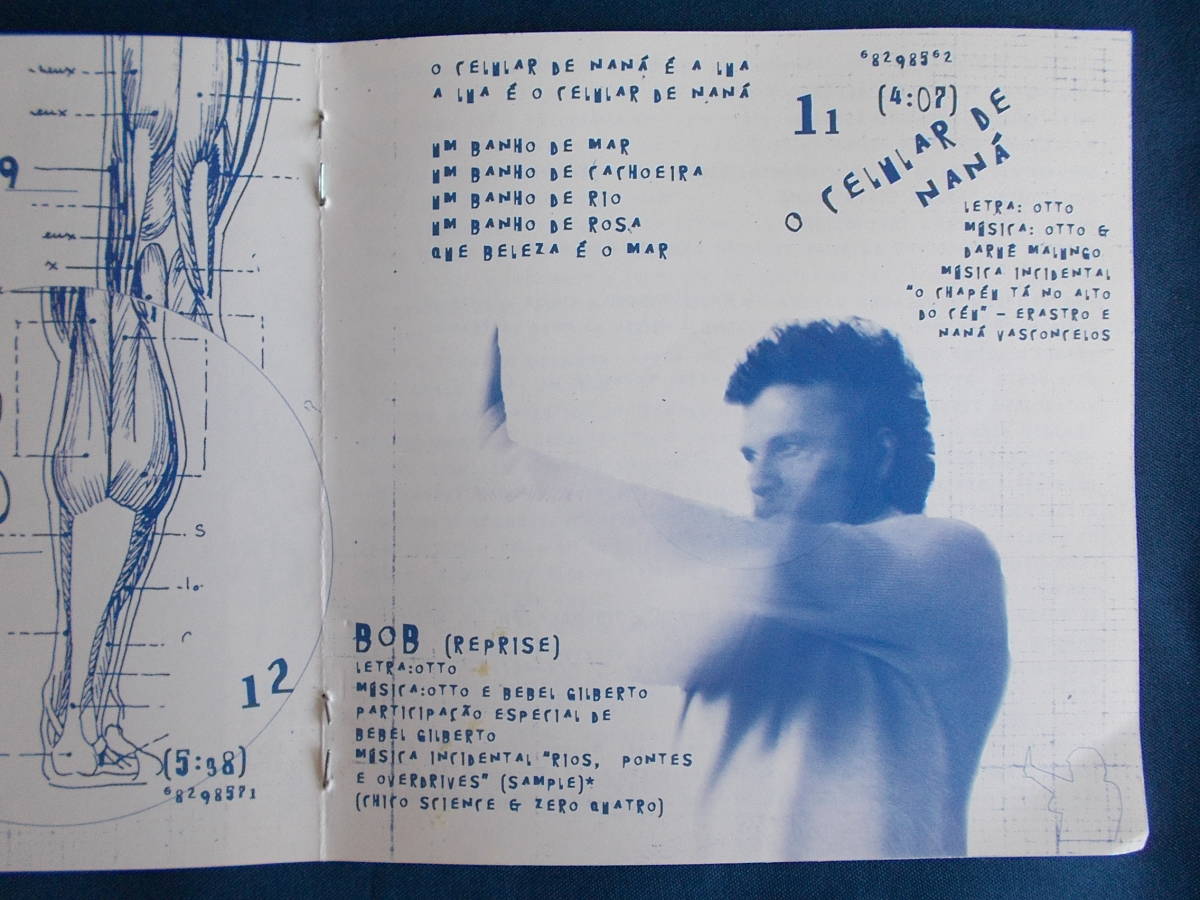 leux
eux
9
eux
x
S
lo
r
12
(5:38)
68298571
O CELULAR DE NANÁ É A LUA
A LUA É O CELULAR DE NANÁ
UM BANHO DE MAR
UM BANHO DE CACHOEIRA
UM BANHO DE RIO
UM BANHO DE ROSA
QUE BELEZA É O MAR
68298562
11 (4:07)
O CELULAR DE
NANÁ
LETRA: OTTO
MÚSICA: OTTO &
DARUÊ MALUNGO
MÚSICA INCIDENTAL
"O CHAPÉU TÁ NO ALTO
DO CÉU" - ERASTRO E
NANÁ VASCONCELOS
BOB (REPRISE)
LETRA:OTTO
MÚSICA:OTTO E BEBEL GILBERTO
PARTICIPAÇÃO ESPECIAL DE
BEBEL GILBERTO
MÚSICA INCIDENTAL "RIOS, PONTES
E OVERDRIVES" (SAMPLE)*
(CHICO SCIENCE & ZERO QUATRO)